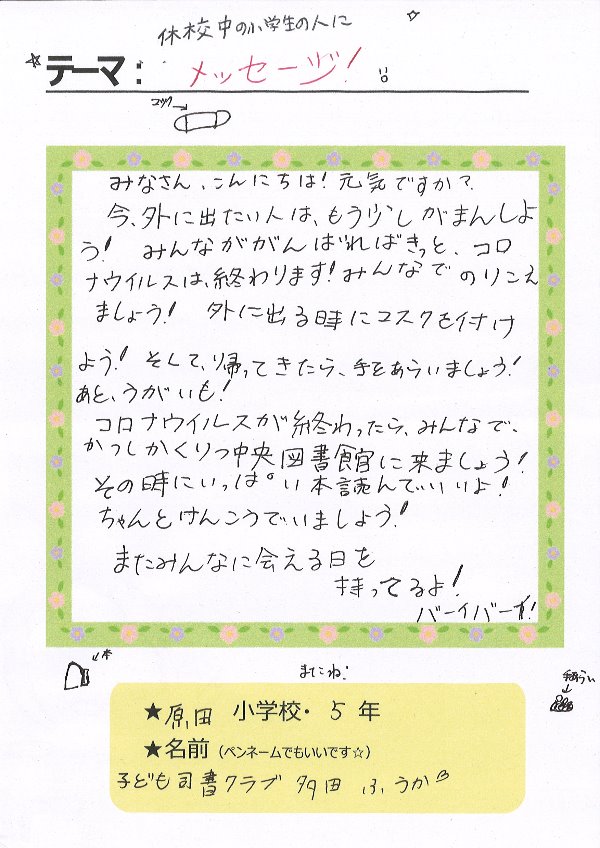 休校中の小学生の人に
☆テーマ: メッセージ!
コスク→
みなさん、こんにちは!元気ですか?
今、外に出たい人は、もう少しがまんしよ
う! みんながんばればきっと、コロ
ナウイルスは、終わります!みんなでのりこえ
ましょう! 外に出る時にコスクを付け
よう! そして、帰ってきたら、手をあらいましょう!
あと、うがいも!
コロナウイルスが終わったら、みんなで、
かつしかくりつ中央図書館に来ましょう!
その時にいっぱい本読んでいいよ!
ちゃんとけんこうでいましょう!
またみんなに会える日を
持ってるよ!
バーイバーイ!
またね!
←本
手あらい
↓
★原田 小学校・5年
★名前(ペンネームでもいいです☆)
子ども司書クラブ 多田 ふうか